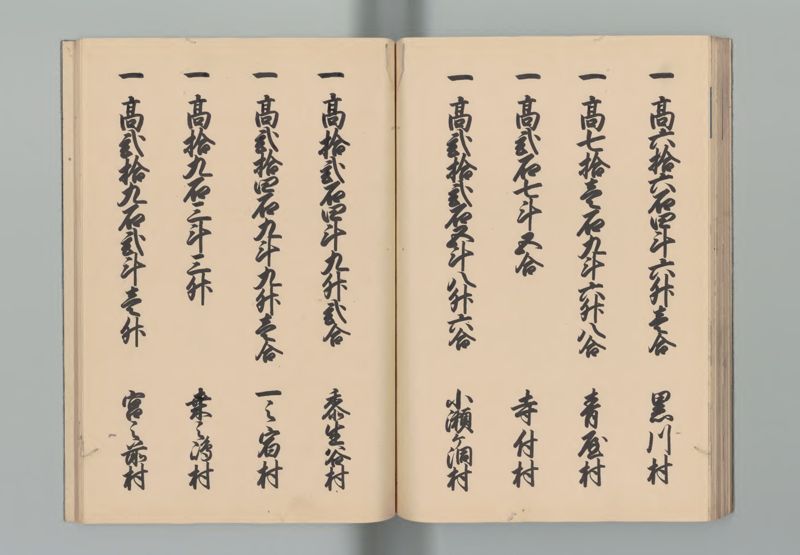 一 高六拾六石四斗六升壱合 黒川村
一 高七拾壱石九斗六升八合 青屋村
一 高弐石七斗五合 寺付村
一 高弐拾弐石五斗八升六合 小瀬ヶ洞村
一 高拾弐石四斗九升弐合 黍生谷村
一 高弐拾四石九斗九升壱合 一之宿村
一 高拾九石三斗三升 桑之嶋村
一 高弐拾九石弐斗壱升 宮之前村